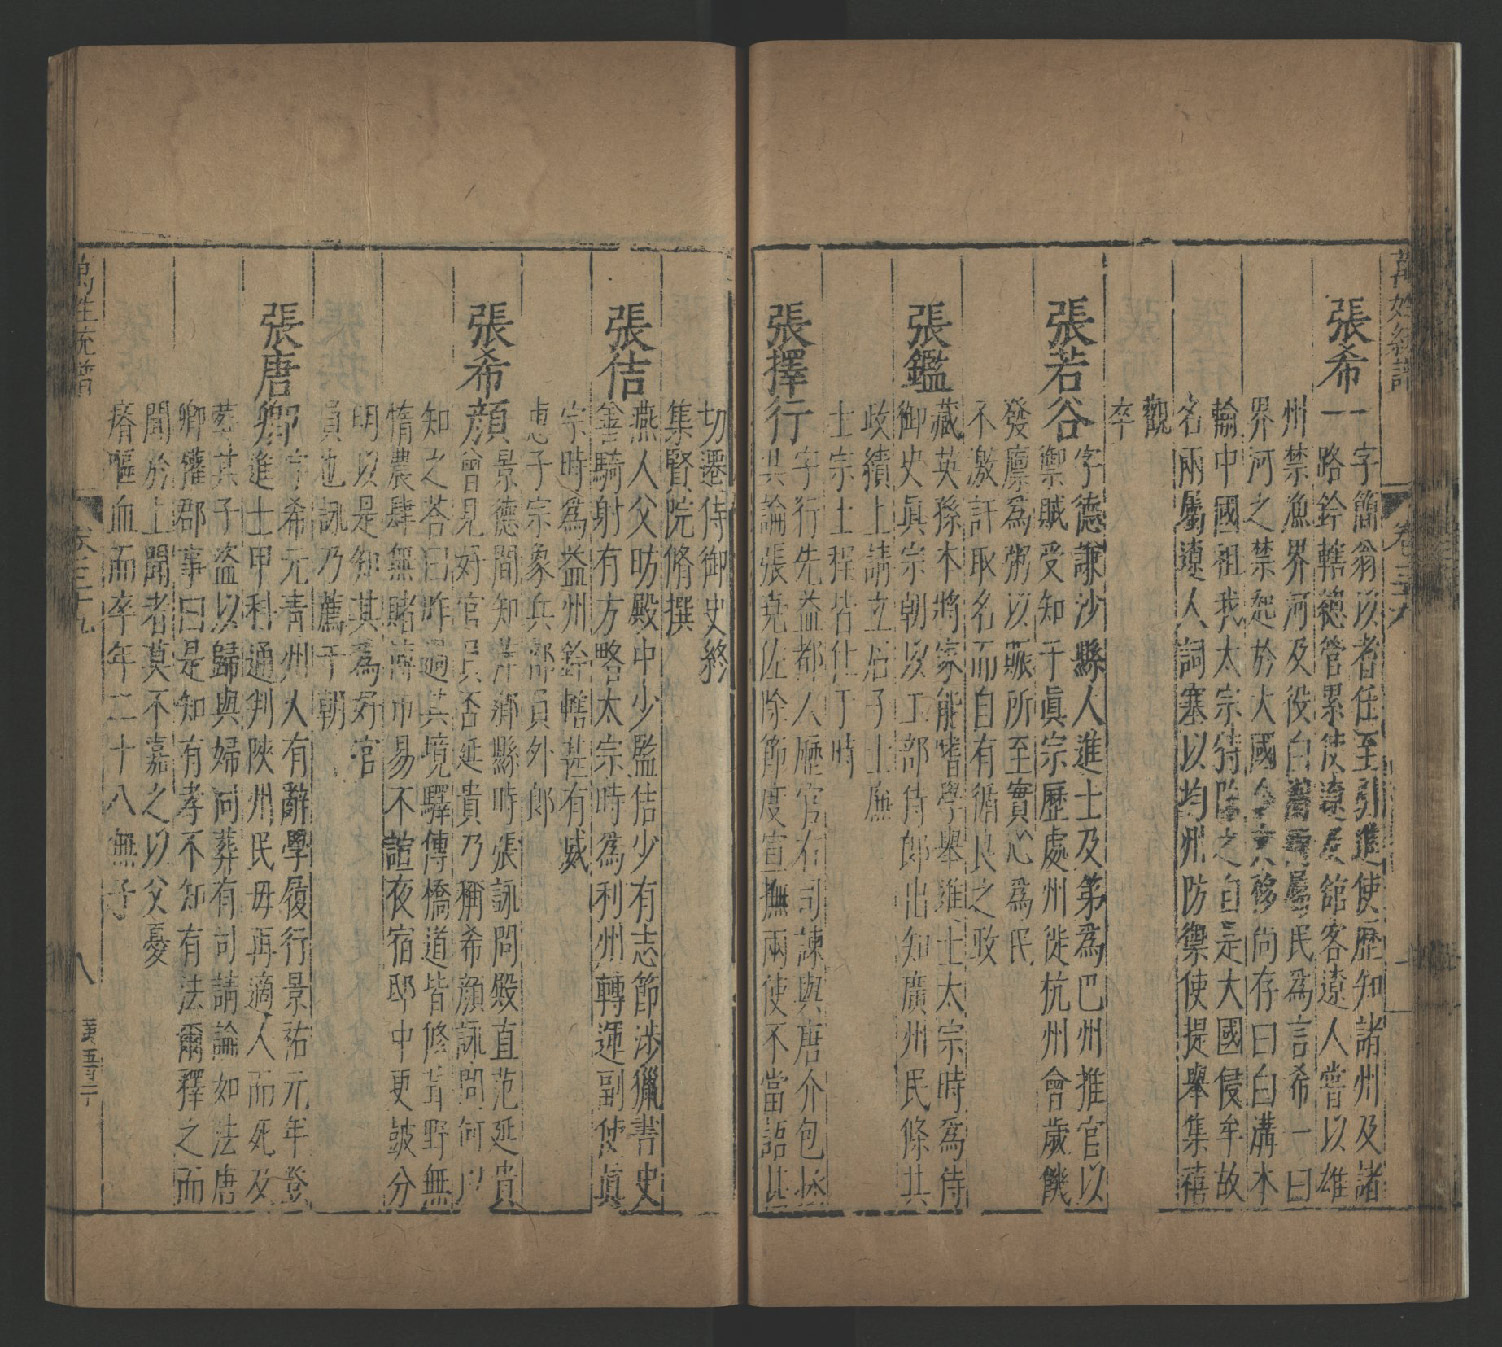 萬姓統譜
卷三十九
張希一字簡翁以者任至引進使歷知諸州及諸
路鈐轄總管累使遼及館客遼人嘗以雄
州禁漁界河及役白溝兩屬民為言希一曰
界河之禁起於大國今文移尚存曰白溝本
輸中國祖我太宗特除之自是大國侵牟故
名兩屬遼人詞塞以均州防禦使提舉集禧
觀
卒
張若谷字德謙沙縣人進士及第為巴州推官以
禦賊受知于眞宗歷處州徙杭州會歲饑
發廩為粥以賑所至實心為民
不激訐取名而自有循良之政
張鑑藏英孫本將家能嗜學舉進士太宗時為侍
御史眞宗朝以工部侍郎出知廣州民條其
政績上請立石子士廉
士宗士程皆仕于時
張擇行字行先益都人歷官右司諫與唐介包拯
共論張堯佐除節度宣撫兩使不當語甚
切遷侍御史終
集賢院脩撰
張佶燕人父昉殿中少監佶少有志節涉獵書史
善騎射有方略太宗時為利州轉運副使眞
宗時為益州鈐轄甚有威
惠子宗象兵部員外郎
張希顔景德間知萍鄉縣時張詠問殿直范延貴
曾見好官員否延貴乃稱希顔詠問何以
知之答曰昨過其境驛傳橋道皆修葺野無
惰農肆無賭博市易不諠夜宿邸中更鼓分
明以是知其為好官
員也詠乃薦于朝
張唐卿字希元青州人有辭學履行景祐元年登
進士甲科通判陝州民母再適人而死及
葬其子盜以歸與婦同葬有司請論如法唐
卿權郡事曰是知有孝不知有法爾釋之而
聞於上聞者莫不嘉之以父憂
瘠嘔血而卒年二十八無子
萬姓統譜
卷三十九
八